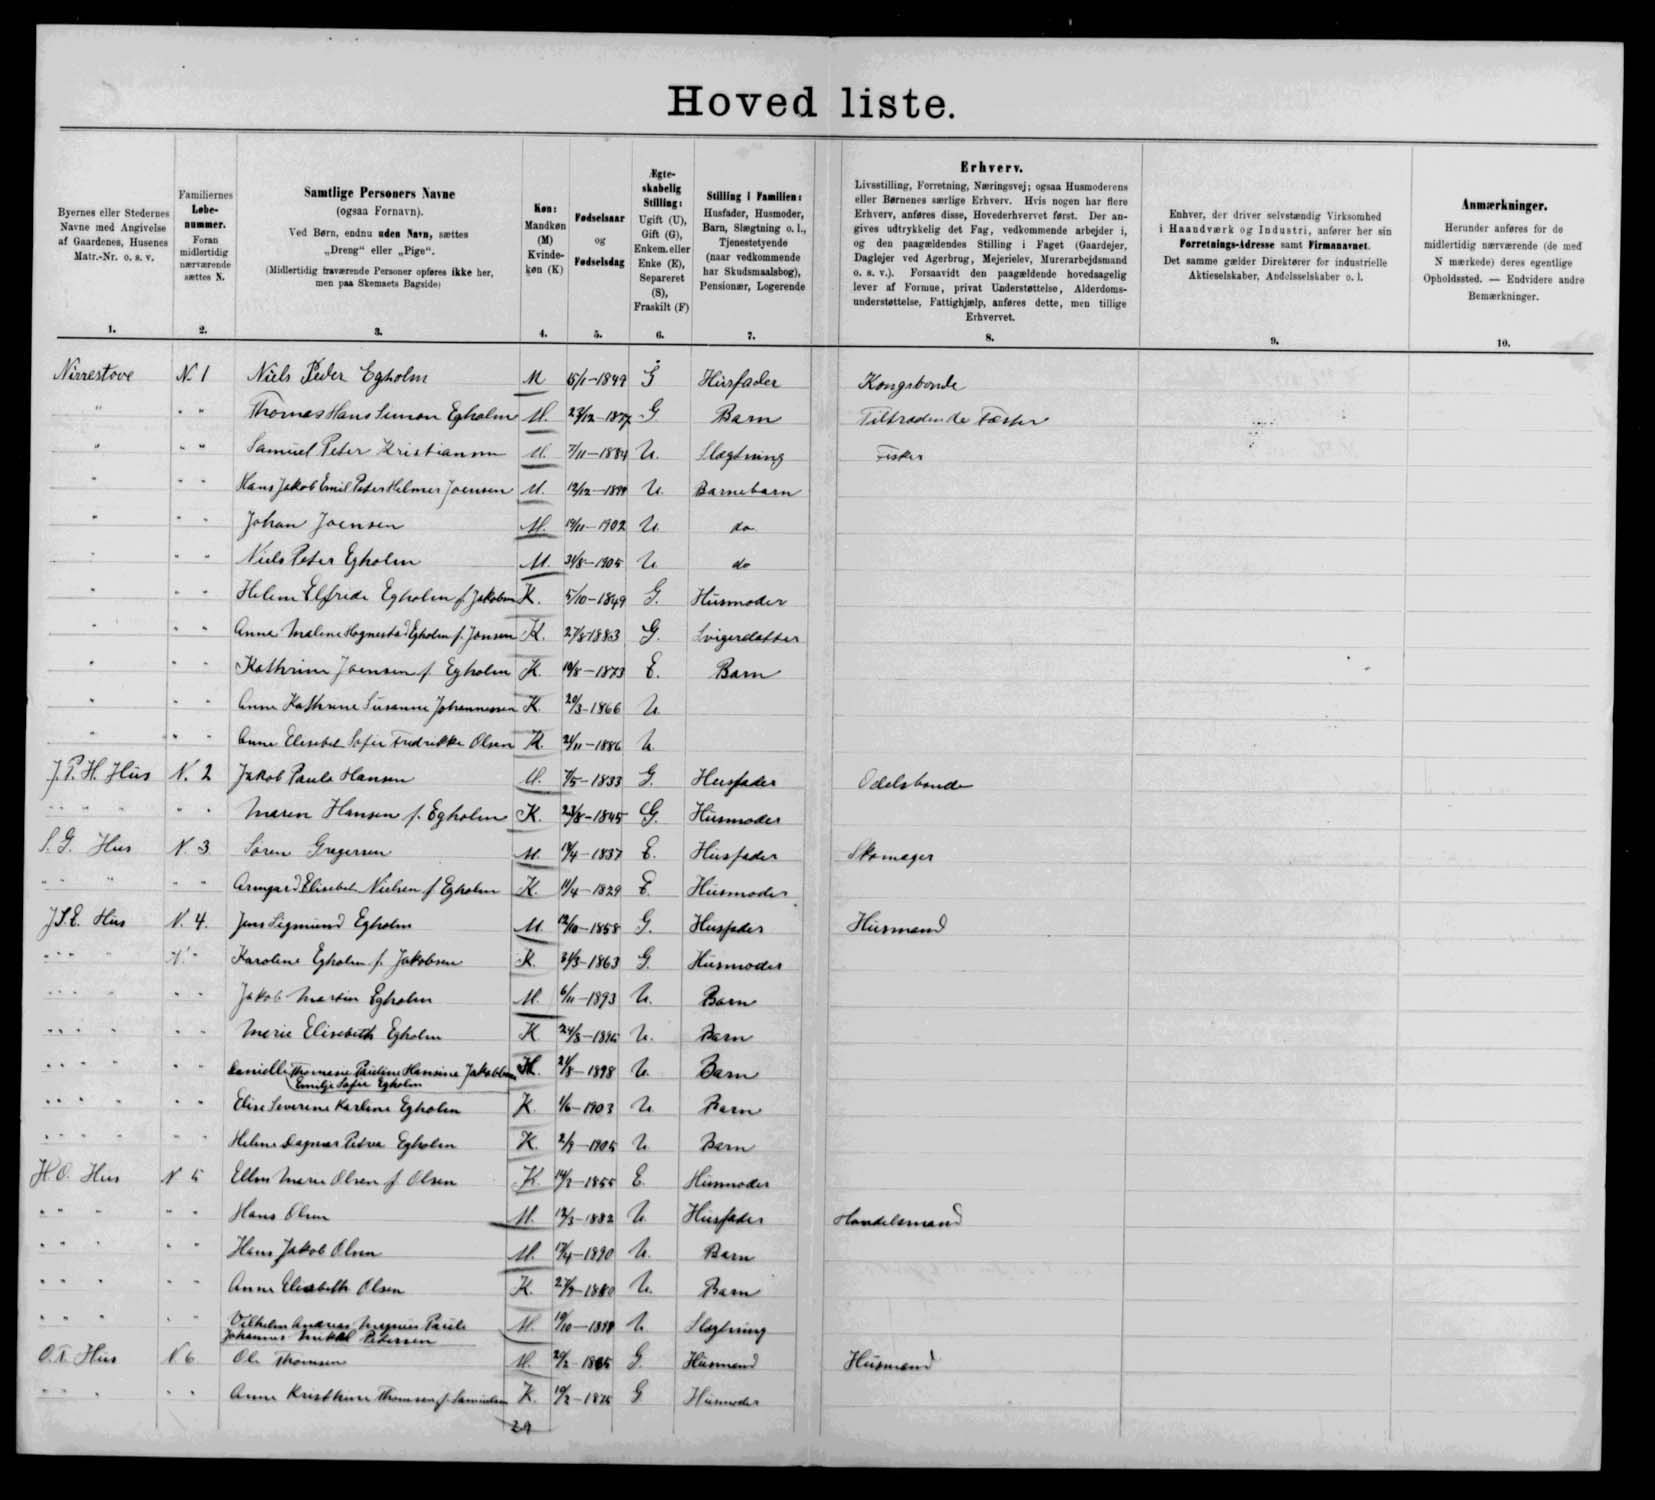 Hovedliste.
Byernes eller Stedernes Navne med Angivelse af Gaardenes, Husenes Matr.-Nr. o. s. v.
Familiernes Løbe-nummer. Foran midlertidig nærværende sættes N.
Samtlige Personers Navne (ogsaa Fornavn). Ved Børn, endnu uden Navn, sættes „Dreng“ eller „Pige“. (Midlertidig fraværende Personer opføres ikke her, men paa Skemaets Bagside)
Køn: Mandkøn (M) Kvinde-køn (K)
Fødselsaar og Fødselsdag
Ægte-skabelig Stilling: Ugift (U), Gift (G), Enkem. eller Enke (E), Separeret (S), Fraskilt (F)
Stilling i Familien: Husfader, Husmoder, Barn, Slægtning o. l., Tjenestetyende (naar vedkommende har Skudsmaalsbog), Pensionær, Logerende
Erhverv. Livsstilling, Forretning, Næringsvej; ogsaa Husmoderens eller Børnenes særlige Erhverv. Hvis nogen har flere Erhverv, anføres disse, Hovederhvervet først. Der an-gives udtrykkelig det Fag, vedkommende arbejder i, og den paagældendes Stilling i Faget (Gaardejer, Daglejer ved Agerbrug, Mejerielev, Murerarbejdsmand o. s. v.). Forsaavidt den paagældende hovedsagelig lever af Formue, privat Understøttelse, Alderdoms-understøttelse, Fattighjælp, anføres dette, men tillige Erhvervet.
Enhver, der driver selvstændig Virksomhed i Haandværk og Industri, anfører her sin Forretnings-Adresse samt Firmanavnet. Det samme gælder Direktører for industrielle Aktieselskaber, Andelsselskaber o. l.
Anmærkninger. Herunder anføres for de midlertidig nærværende (de med N mærkede) deres egentlige Opholdssted. — Endvidere andre Bemærkninger.
1. 2. 3. 4. 5. 6. 7. 8. 9. 10.
Nirrestove N. 1 Niels Peder Egholm M 15/1-1849 G Husfader Kongsbonde
" " " Thomas Hans Simon Egholm M. 23/12-1877 G Barn Tiltrædende Fæster
" " " Samuel Peter Kristiansen M. 7/11-1884 U. Slægtning Fisker
" " " Hans Jakob Emil Peter Helmer Joensen M. 12/12-1899 U. Barnebarn
" " " Johan Joensen M. 19/11-1902 U. do
" " " Niels Peter Egholm M. 31/8-1905 U do
" " " Helene Elfride Egholm f. Jakobsen K. 5/10-1849 G. Husmoder
" " " Anna Malene Hognestad Egholm f. Jensen K. 27/8-1883 G. Svigerdatter
" " " Kathrine Joensen f. Egholm K. 1873 E. Barn
" " " Anne Kathrine Susanne Johannessen K. 20/3-1866 U.
" " " Anne Elisebet Sofie Fredrikke Olsen K. 21/11-1886 U.
J. P. H. Hus N. 2 Jakob Paule Hansen M. 7/5-1833 G. Husfader Odelsbonde
" " " " " Maren Hansen f. Egholm K. 23/8-1845 G. Husmoder
S. G. Hus N. 3 Søren Gregersen M. 1837 E. Husfader Skomager
" " " " " Armgard Elisebet Nielsen f. Egholm K. 11/4-1829 E. Husmoder
J. S. E. Hus N. 4. Jens Sigmund Egholm M 12/10-1858 G. Husfader Husmand
" " " " " " Karoline Egholm f. Jakobsen K. 1863 G. Husmoder
" " " " " " Jakob Martin Egholm M. 6/11-1893 U. Barn
" " " " " " Marie Elisebeth Egholm K 24/8-1896 U. Barn
" " " " " " Danielle Thomine Pauline Hansine Jakobine K. 21/8-1898 U. Barn
Emilje Sofie Egholm
" " " " " " Elise Severine Karline Egholm K. 1/6-1903 U. Barn
" " " " " " Helene Dagmar Petra Egholm K. 1905 U. Barn
H. O. Hus N 5 Ellen Marie Olsen f. Olsen K. 1855 E. Husmoder
" " " " " Hans Olsen M. 12/3-1882 U. Husfader Handelsmand
" " " " " Hans Jakob Olsen M. 1890 U. Barn
" " " " " Anne Elisabeth Olsen K. 1880 U. Barn
" " " " " Vilhelm Andreas Magnus Paule M. U. Slægtning
Johannes Mikkel Petersen
O. T. Hus N. 6 Ole Thomsen M. G. Husmand Husmand
" " " " " Anne Kristine Thomsen f. Samuelsen K. G Husmoder
29